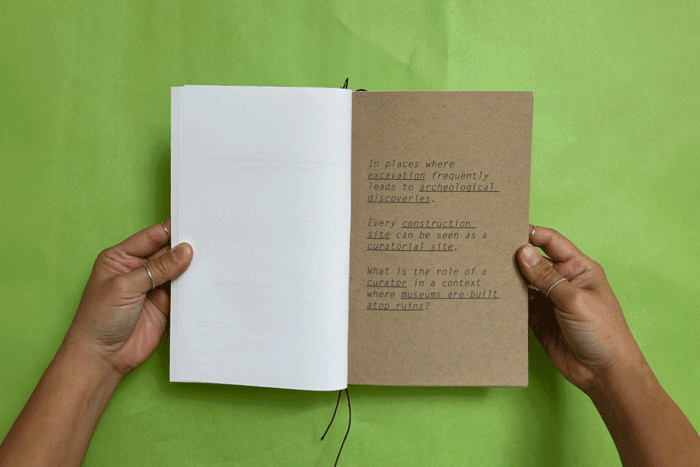 In places where
excavation frequently
leads to archeological
discoveries.
Every construction
site can be seen as a
curatorial site.
What is the role of a
curator in a context
where museums are built
atop ruins?